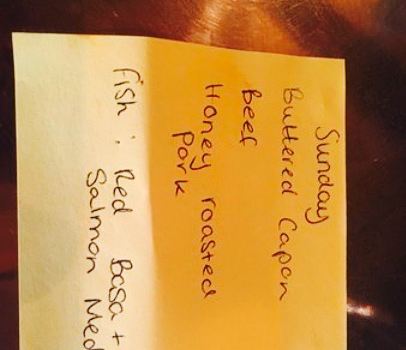 Sunday
Buttered Capon
Beef
Honey roasted
Pork
Fish : Red Basa +
Salmon Med